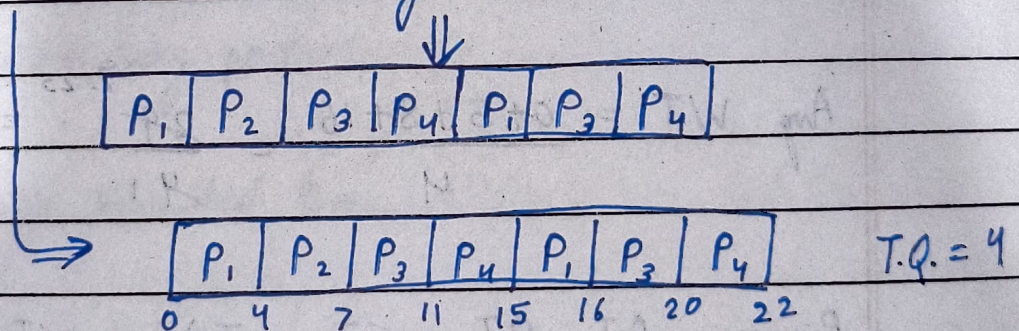 P₁ P₂ P₃ P₄ P₁ P₃ P₄
P₁ P₂ P₃ P₄ P₁ P₃ P₄ T.Q. = 4
0 4 7 11 15 16 20 22